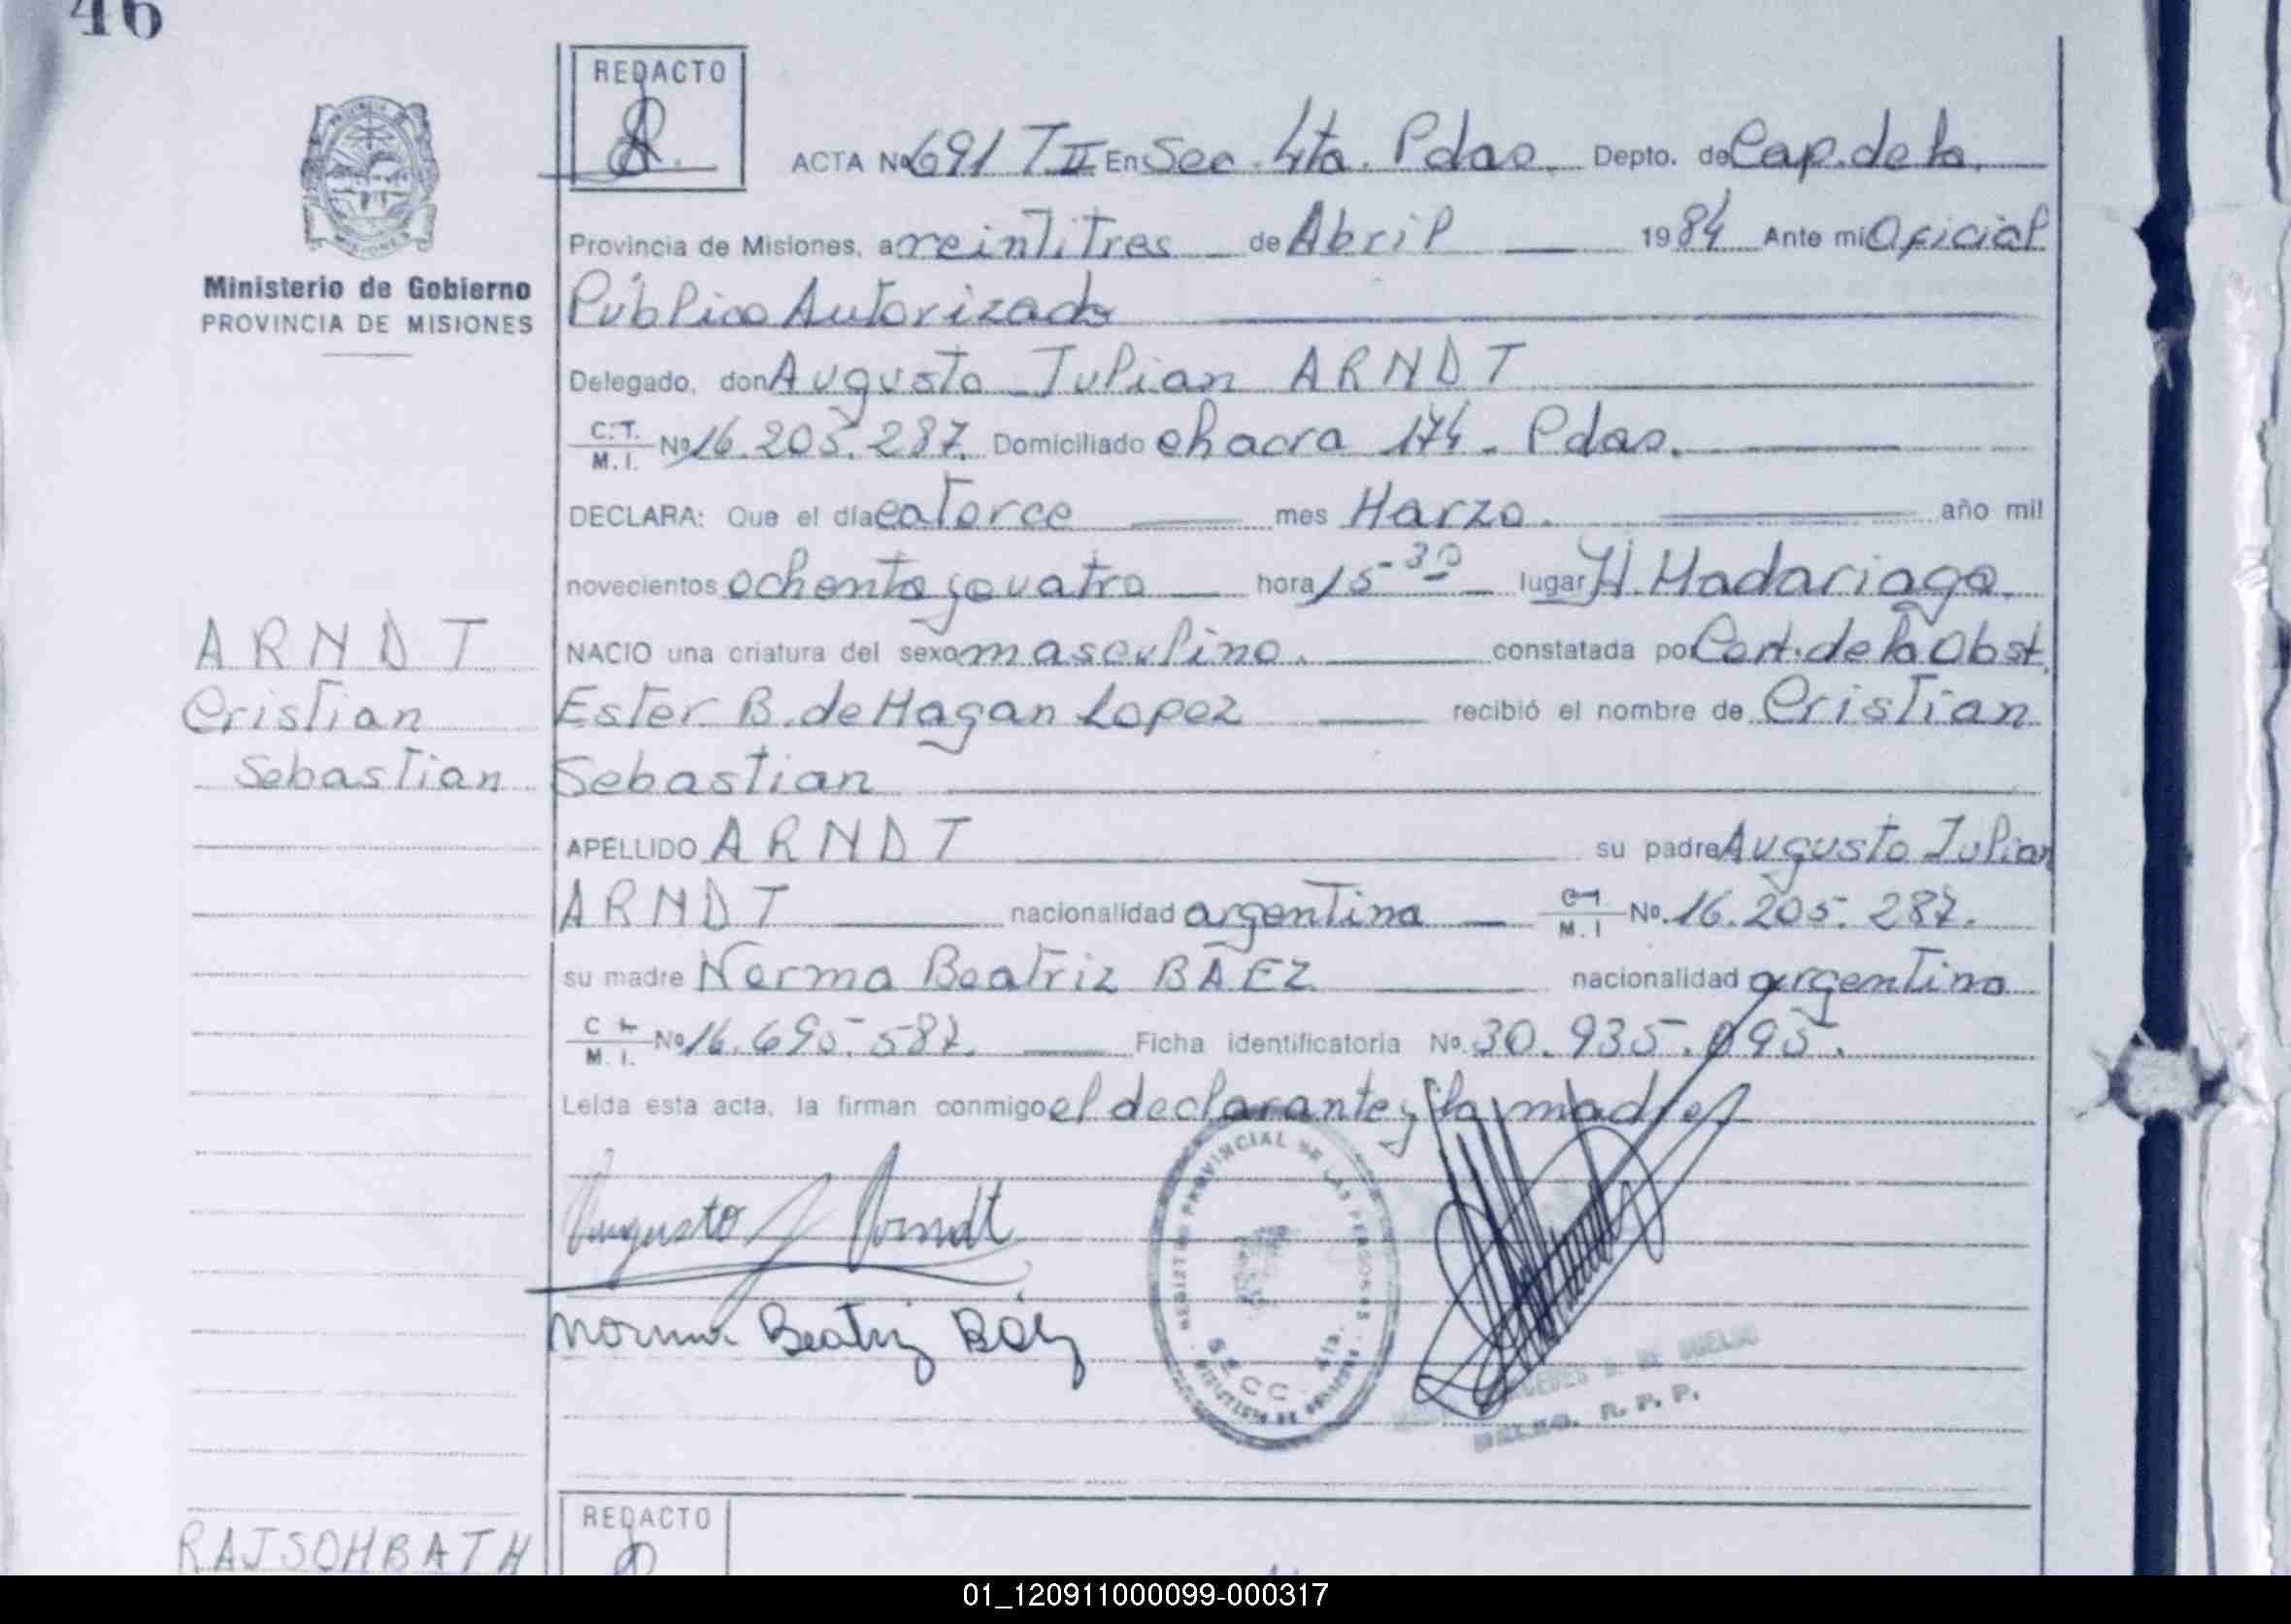 46
REDACTO
ACTA Nº 691 T II En Sec. 4ta. Pdas. Depto. de Cap. de la
Provincia de Misiones, a veintitres de Abril 1984 Ante mi Oficial
Ministerio de Gobierno
PROVINCIA DE MISIONES
Público Autorizado
Delegado, don Augusto Julian ARNDT
C.T. M.I. Nº 16.205.287. Domiciliado chacra 174. Pdas.
DECLARA: Que el día catorce mes Marzo. año mil
novecientos ochenta y cuatro hora 15-30 lugar H. Madariaga.
ARNDT
NACIO una criatura del sexo masculino. constatada por Cert. de la Obst.
Cristian
Ester B. de Hagan Lopez recibió el nombre de Cristian
Sebastian
Sebastian
APELLIDO ARNDT su padre Augusto Julian
ARNDT nacionalidad argentina M.I Nº. 16.205.287.
su madre Norma Beatriz BAEZ nacionalidad argentina
M.I. Nº 16.695.587. Ficha identificatoria Nº. 30.935.095.
Leída esta acta, la firman conmigo el declarante y la madre
Augusto J Arndt
Norma Beatriz Báez
REGISTRO PROVINCIAL DE LAS PERSONAS
SECC. 4ta.
R. P. P.
REDACTO
RAJSOHBATH
01_120911000099-000317